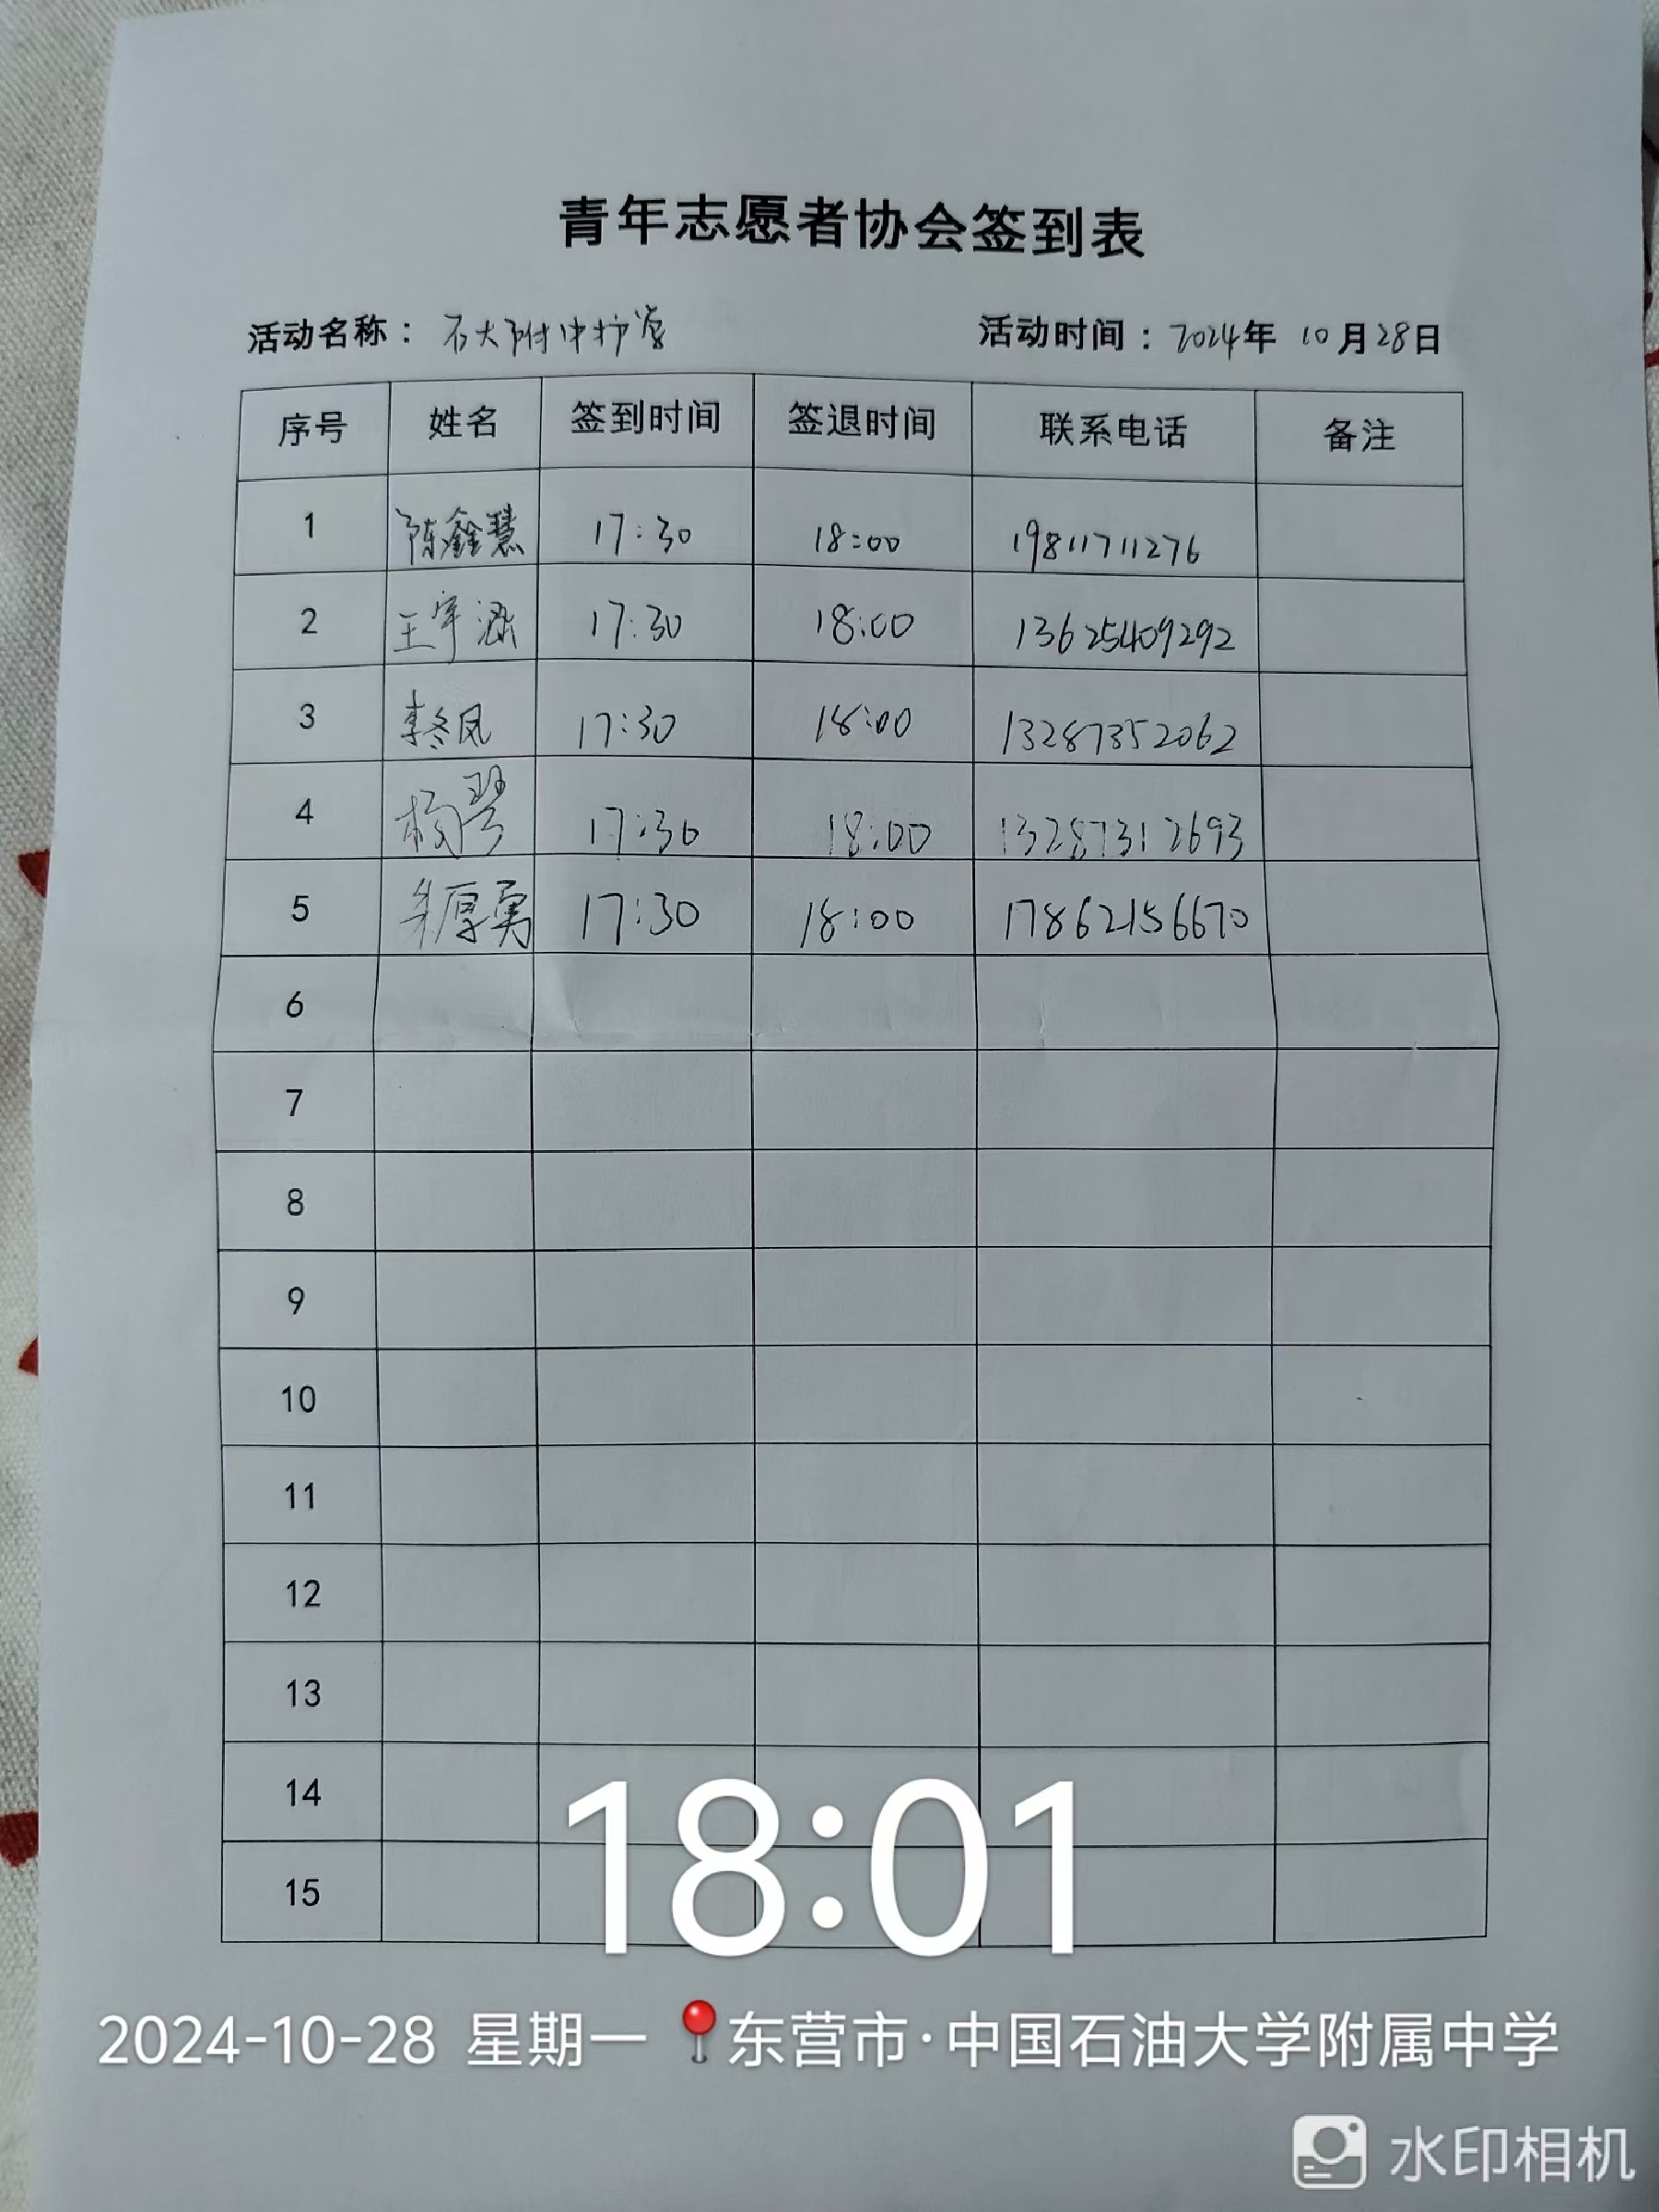 青年志愿者协会签到表
活动名称：石大附中护学 活动时间：2024年 10月28日
序号 姓名 签到时间 签退时间 联系电话 备注
1 陈鑫慧 17:30 18:00 19811711276
2 王宇涵 17:30 18:00 13625409292
3 李冬凤 17:30 18:00 13287352062
4 杨琴 17:30 18:00 13287312693
5 厚勇 17:30 18:00 17862156670
6
7
8
9
10
11
12
13
14
15
18:01
2024-10-28 星期一 东营市·中国石油大学附属中学
水印相机